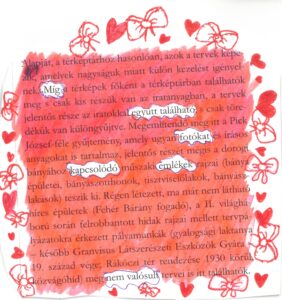 Alapját, a térképtárhoz hasonlóan, azok a tervek képe-
ik, amelyek nagyságuk miatt külön kezelést igényel-
Míg a térképek főként a térképtárban találhatók
meg s csak kis részük van a irattanyagban, a tervek
jelentős része az iratokkal együtt található s csak töre-
dékük van különgyűjtve. Megemlítendő megatt a Pick
József-féle gyűjtemény, amely ugyan fotókat és írásos
anyagokat is tartalmaz, jelentős részét mégis a dorogi
bányához kapcsolodó műszaki emlékek rajzai (bánya
épületei, bányászotthonok, tisztviselőlakok, bányász-
lakások) teszik ki. Régen létezett, ma már nem látható
híres épületek (Fehér Bárány fogadó), a II. világhá-
ború során felrobbantott hidak rajzai mellett tervpá-
lyázatokra érkezett pályamunkák (gyalogsági laktanya
később Granvisus Látszerészeti Eszközök Gyára
19. század vége; Rákóczi tér rendezése 1930 körül,
közvágóhíd) meg nem valósult tervei is itt találhatók.